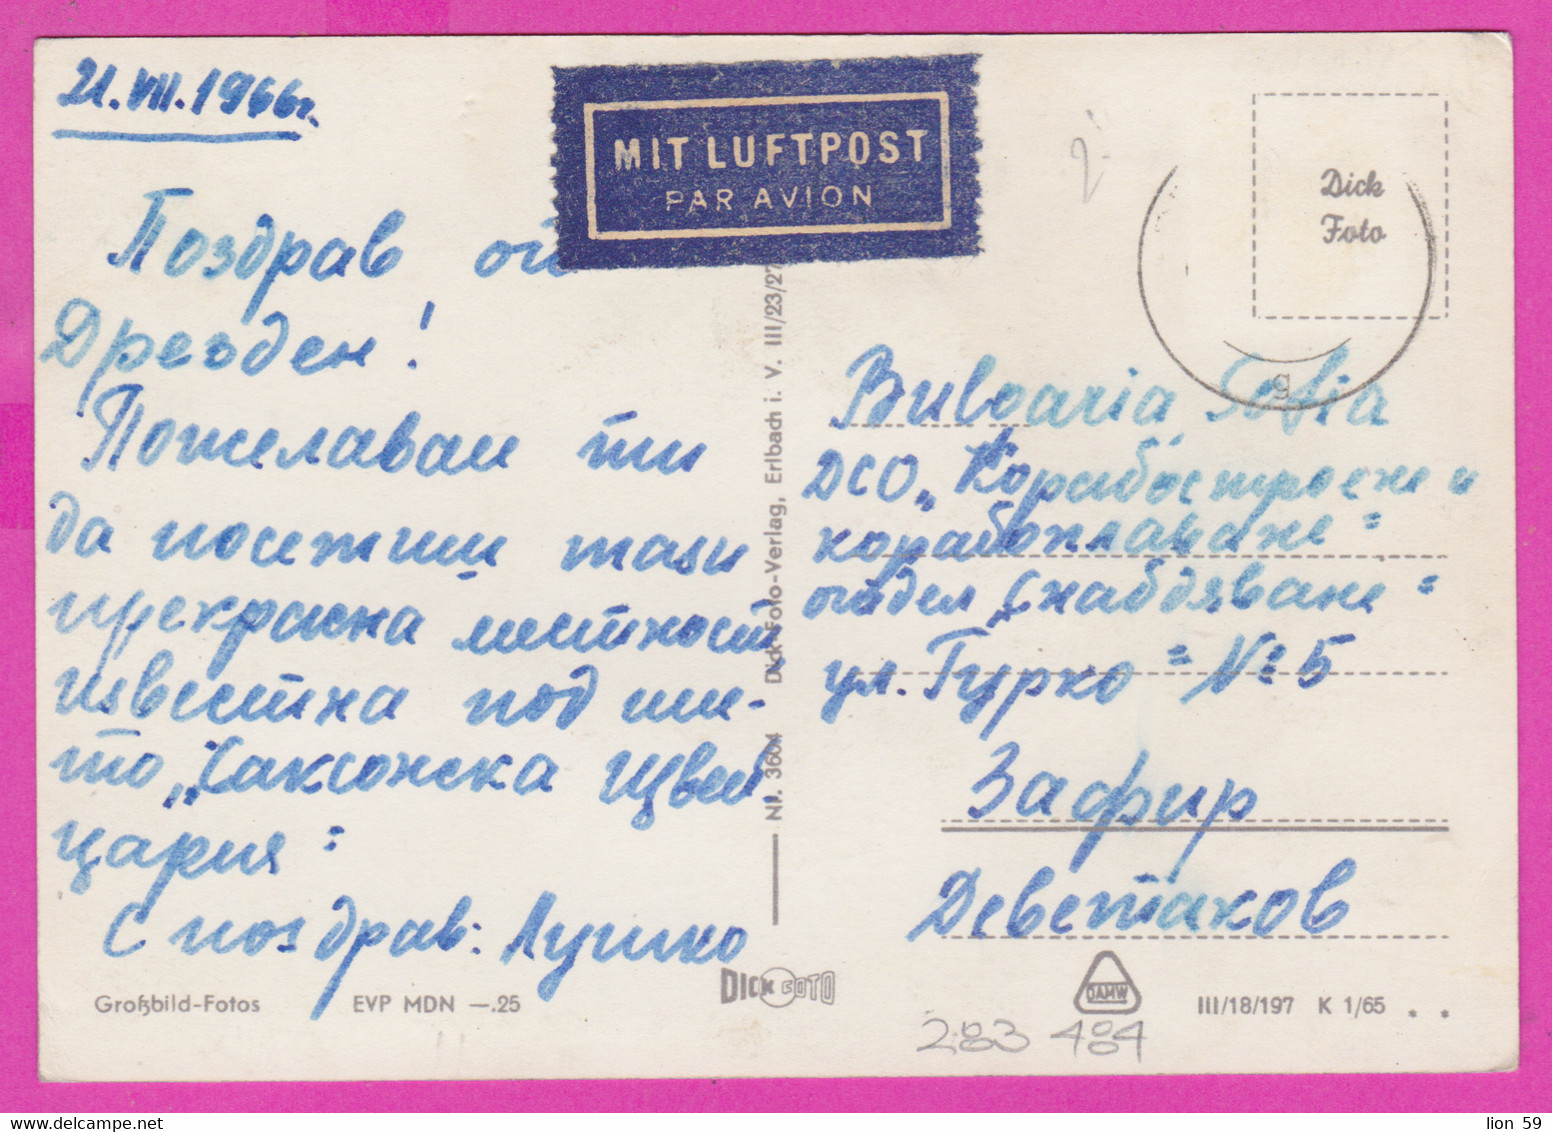 21.VII.1966г.
MIT LUFTPOST
PAR AVION
Dick
Foto
Поздрав от
Дрезден!
Пожелавам ти
да посетиш тази
прекрасна местност
известна под име-
то „Саксонска Швей
цария"
С поздрав: Лушко
Nr. 3604 Dick-Foto-Verlag, Erlbach i. V. III/23/27
g
Bulgaria Sofia
ДСО „Корабостроене и
корабоплаване"
отдел „Снабдяване"
ул. Гурко" № 5
Зафир
Деветаков
Großbild-Fotos EVP MDN —.25
DICK FOTO
DAMW
III/18/197 K 1/65
283 484
www.delcampe.net
lion 59